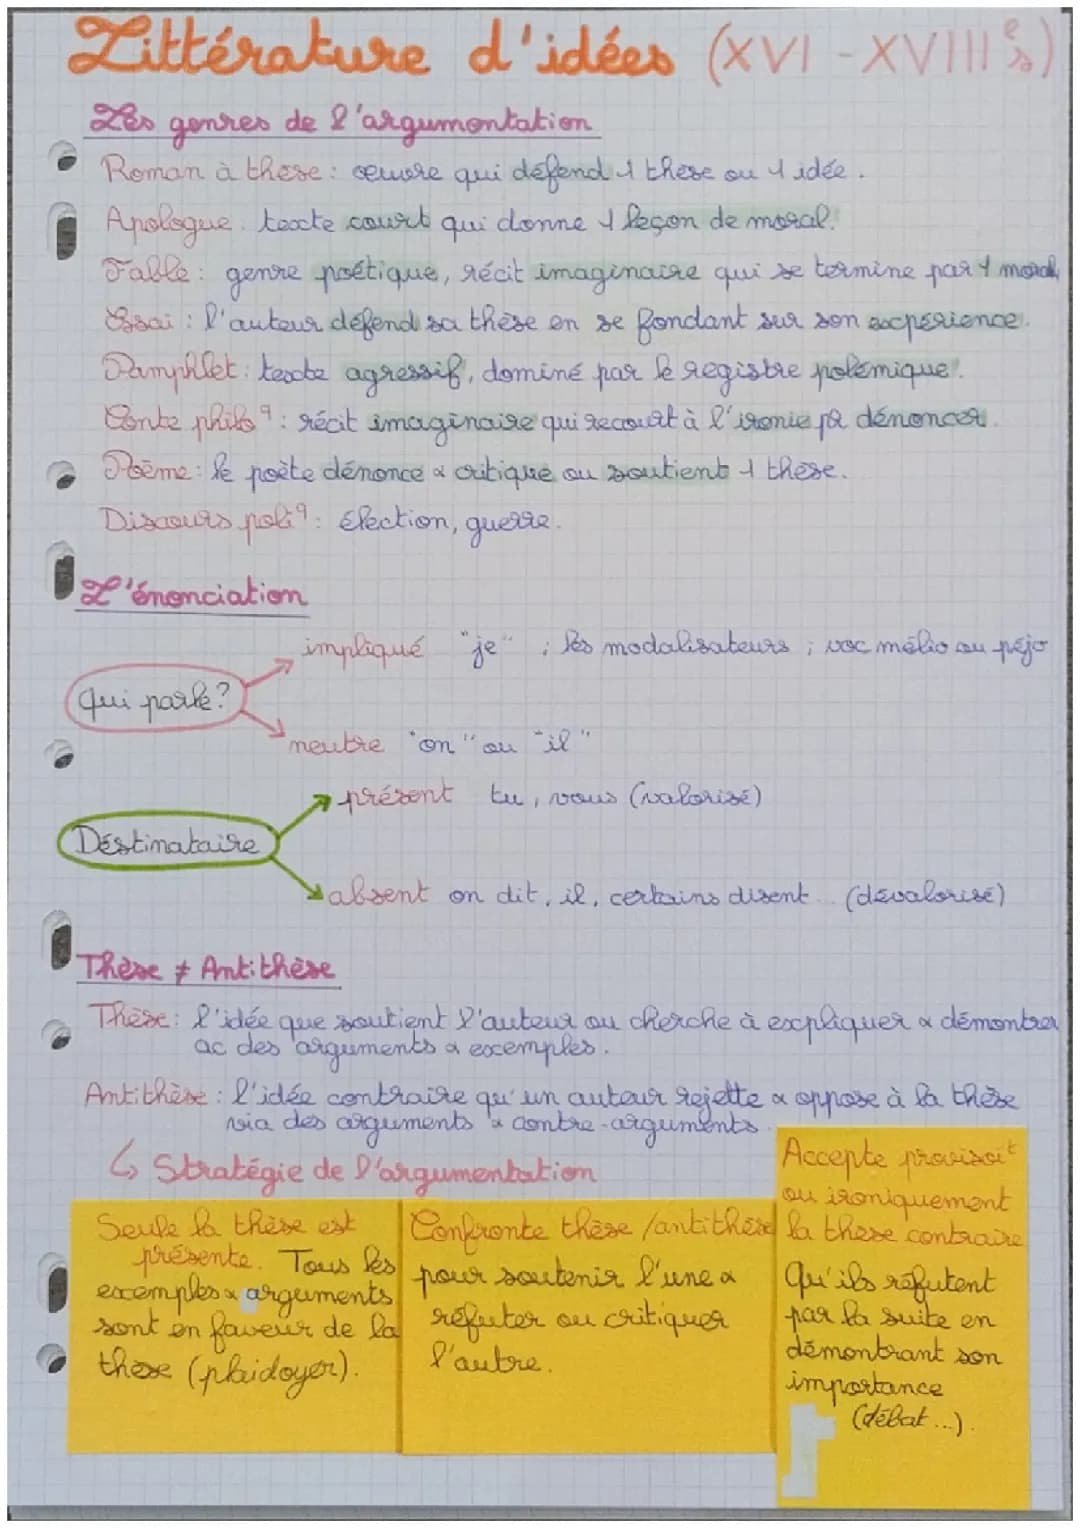 Littérature d'idées (XVI - XVIIIes)
Les genres de l'argumentation
Roman à thèse : œuvre qui défend 1 thèse ou 1 idée.
Apologue : texte court qui donne 1 leçon de moral.
Fable : genre poétique, récit imaginaire qui se termine par 1 moral
Essai : l'auteur défend sa thèse en se fondant sur son expérience.
Pamphlet : texte agressif, dominé par le registre polémique.
Conte philoq : récit imaginaire qui recourt à l'ironie pr dénoncer.
Poème : le poète dénonce & critique ou soutient 1 thèse.
Discours poliq : élection, guerre.
L'énonciation
impliqué "je" ; les modalisateurs ; voc mélio ou péjo
Qui parle ?
neutre "on" ou "il"
présent tu, vous (valorisé)
Destinataire
absent on dit, il, certains disent... (dévalorisé)
Thèse ≠ Antithèse
Thèse : l'idée que soutient l'auteur ou cherche à expliquer & démontrer
ac des arguments & exemples.
Antithèse : l'idée contraire qu'un auteur rejette & oppose à la thèse
via des arguments & contre-arguments.
↳ Stratégie de l'argumentation
Seule la thèse est
présente. Tous les
exemples & arguments
sont en faveur de la
thèse (plaidoyer).
Confronte thèse/antithèse
pour soutenir l'une &
réfuter ou critiquer
l'autre.
Accepte provisoit
ou ironiquement
la thèse contraire
Qu'ils réfutent
par la suite en
démontrant son
importance
(débat...).